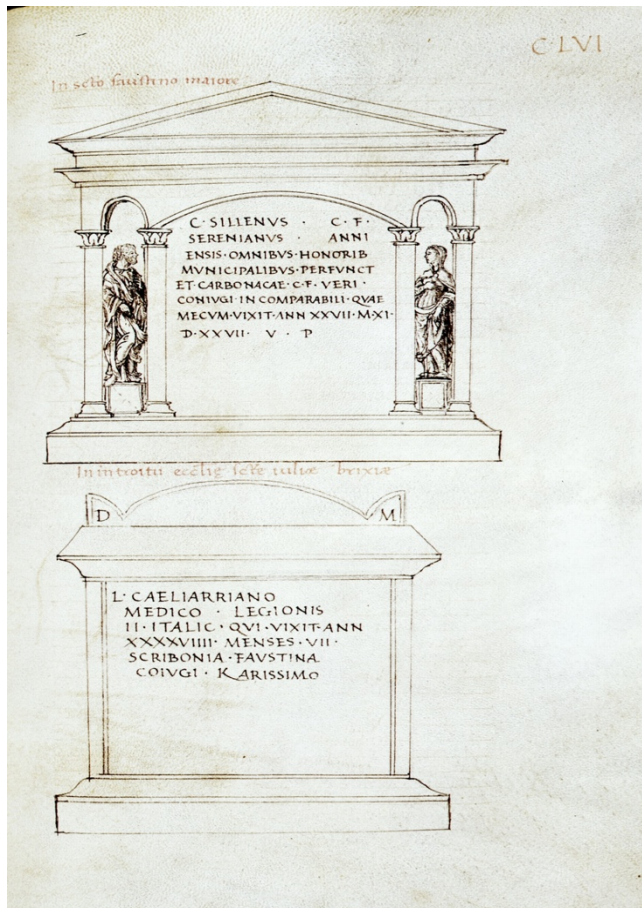 C·LVI
In scto faustino maiore
C·SILLENVS · C·F·
SERENIANVS · ANNI
ENSIS·OMNIBVS·HONORIB
MVNICIPALIBVS·PERFVNCT
ET·CARBONACAE·C·F·VERI·
CONIVGI·IN COMPARABILI·QVAE
MECVM·VIXIT·ANN XXVII·M·XI·
D·XXVII· V · P
In introitu ecclie scte iulie brixie
D M
L·CAELIARRIANO
MEDICO · LEGIONIS
II·ITALIC·QVI·VIXIT·ANN
XXXXVIIII·MENSES·VII·
SCRIBONIA·FAUSTINA
COIVGI·KARISSIMO